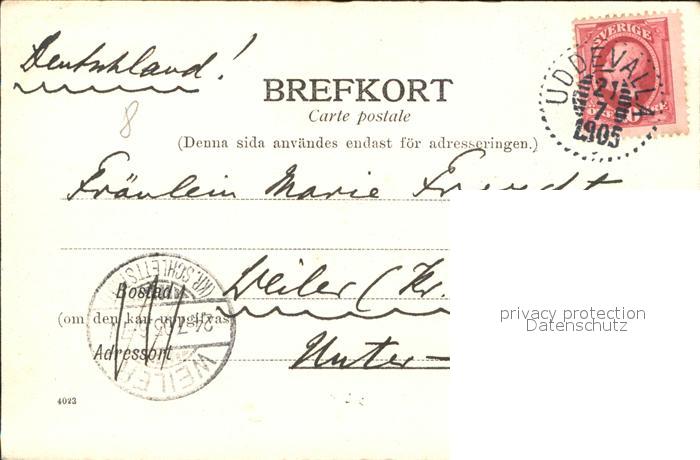 Deutschland!
SVERIGE
UDDEVALLA
21
7
1905
8
BREFKORT
Carte postale
(Denna sida användes endast för adresseringen.)
Fräulein Marie
Weiler (Kr.
(KR. SCHLETTST
Bostad
(om den kan uppgifvas)
24.7.05
Adressort
WEILER
Unter-
4023
privacy protection
Datenschutz